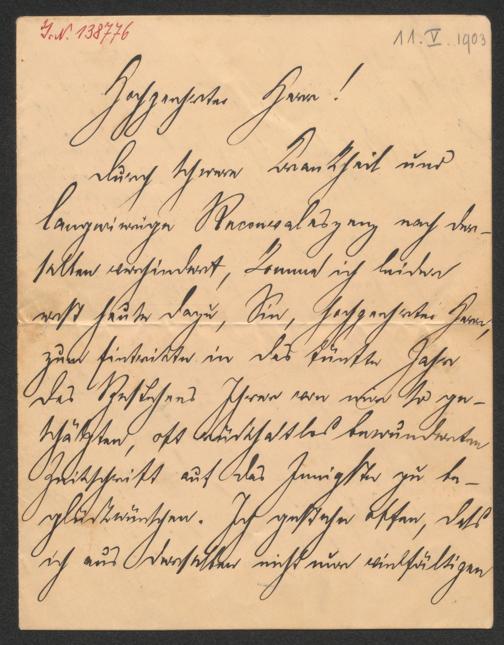 I.N. 138776
11. V. 1903
Hochgeehrter Herr!
Durch schwere Krankheit und
langwierige Reconvaleszenz nach der-
selben verhindert, komme ich leider
erst heute dazu, Sie, hochgeehrter Herr,
zum Eintritte in das fünfte Jahr
des Bestehens Ihrer von mir so ge-
schätzten, oft rückhaltlos bewunderten
Zeitschrift auf das Innigste zu be-
glückwünschen. Ich gestehe offen, daß
ich aus derselben nicht nur vielfältigen